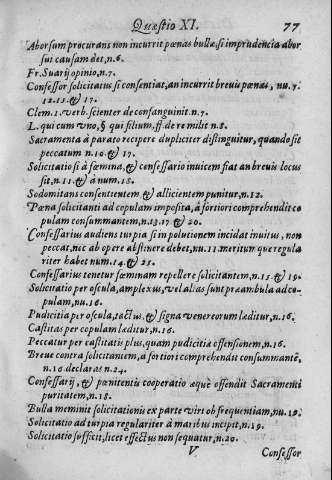 Quæstio XI. 77
Aborsum procurans non incurrit pœnas bullæ, si imprudencia abor
sui causam det, n.6.
Fr. Suarij opinio, n.7.
Confessor solicitatus si consentiat, an incurrit brevis pœnas, nu.7.
12.13. & 17.
Clem. 1. verb. scienter de consanguinit. n.7.
L. qui cum uno, § qui filium, ff. de re milit n.8.
Sacramenta à parato recipere dupliciter distinguitur, quando sit
peccatum n.10. & 17.
Solicitatio si à fœmina, & confessario invicem fiat an brevis locus
sit, n.11. & à num.18.
Sodomitam consentientem & allicientem punitur, n.12.
Pœna solicitanti ad copulam imposita, à fortiori comprehendit co
pulam consummantem, n.13.17 & 20.
Confessarius audiens turpia si in polutionem incidat invitus, non
peccat, nec ab opere abstinere debet, nu.13. meritum que regula
riter habet num.14. & 25.
Confessarius tenetur fœminam repellere solicitantem, n.15. & 19.
Solicitatio per oscula, amplexus, vel alias sunt præambula ad co-
pulam, nu.16.
Pudicitia per oscula, tactus, & signa venereorum læditur, n.16.
Castitas per copulam læditur, n.16.
Peccatur per castitatis plus, quam pudicitia offensionem, n.16.
Breve contra solicitantem, à fortiori comprehendit consummantẽ,
n.16 declaras n.24.
Confessarij, & pœnitentis cooperatio æquè offendit Sacramenti
puritatem, n.18.
Bulla meminit solicitationis ex parte viri ob frequentiam, nu.19.
Solicitatio ad turpia regulariter à maribus incipit, n.19.
Solicitatio sufficit, licet effectus non sequatur, n.20.
V Confessor